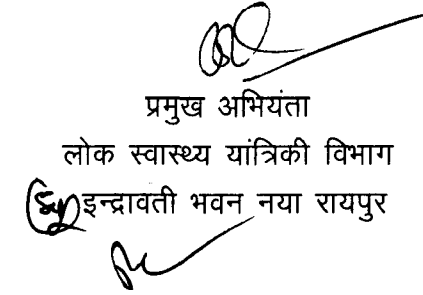 प्रमुख अभियंता
लोक स्वास्थ्य यांत्रिकी विभाग
इन्द्रावती भवन नया रायपुर